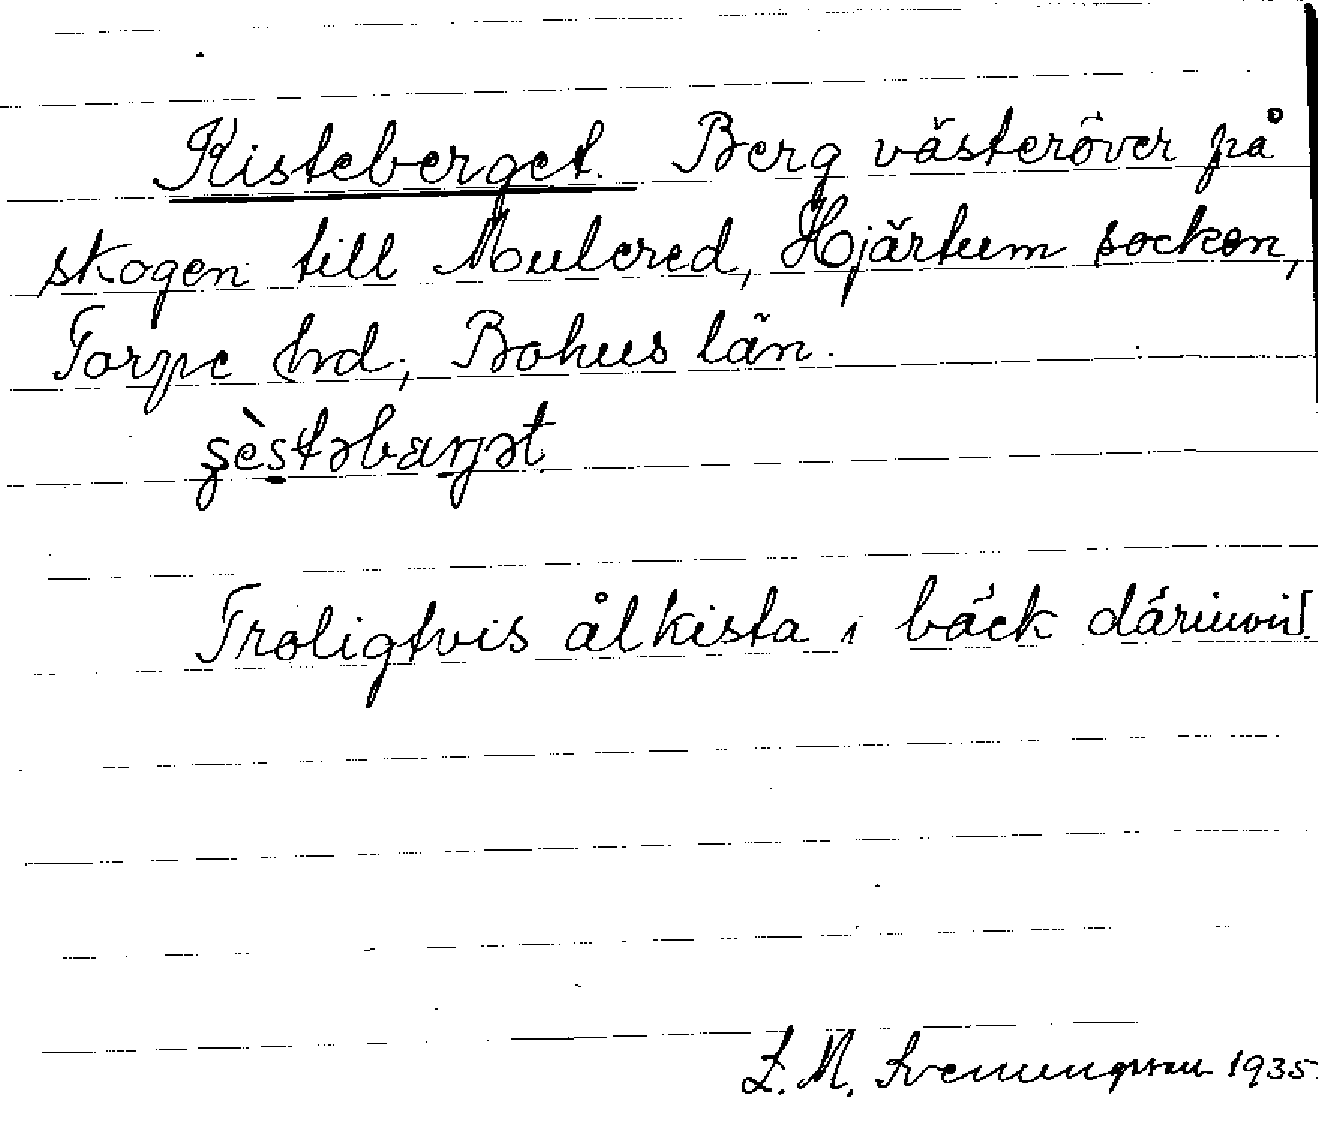 Kisteberget. Berg västeröver på
skogen till Mulered, Hjärtum socken,
Torpe hd, Bohus län.
şèstəbaŋət
Troligtvis ålkista i bäck därinvid.
L. M. Svenungsson 1935